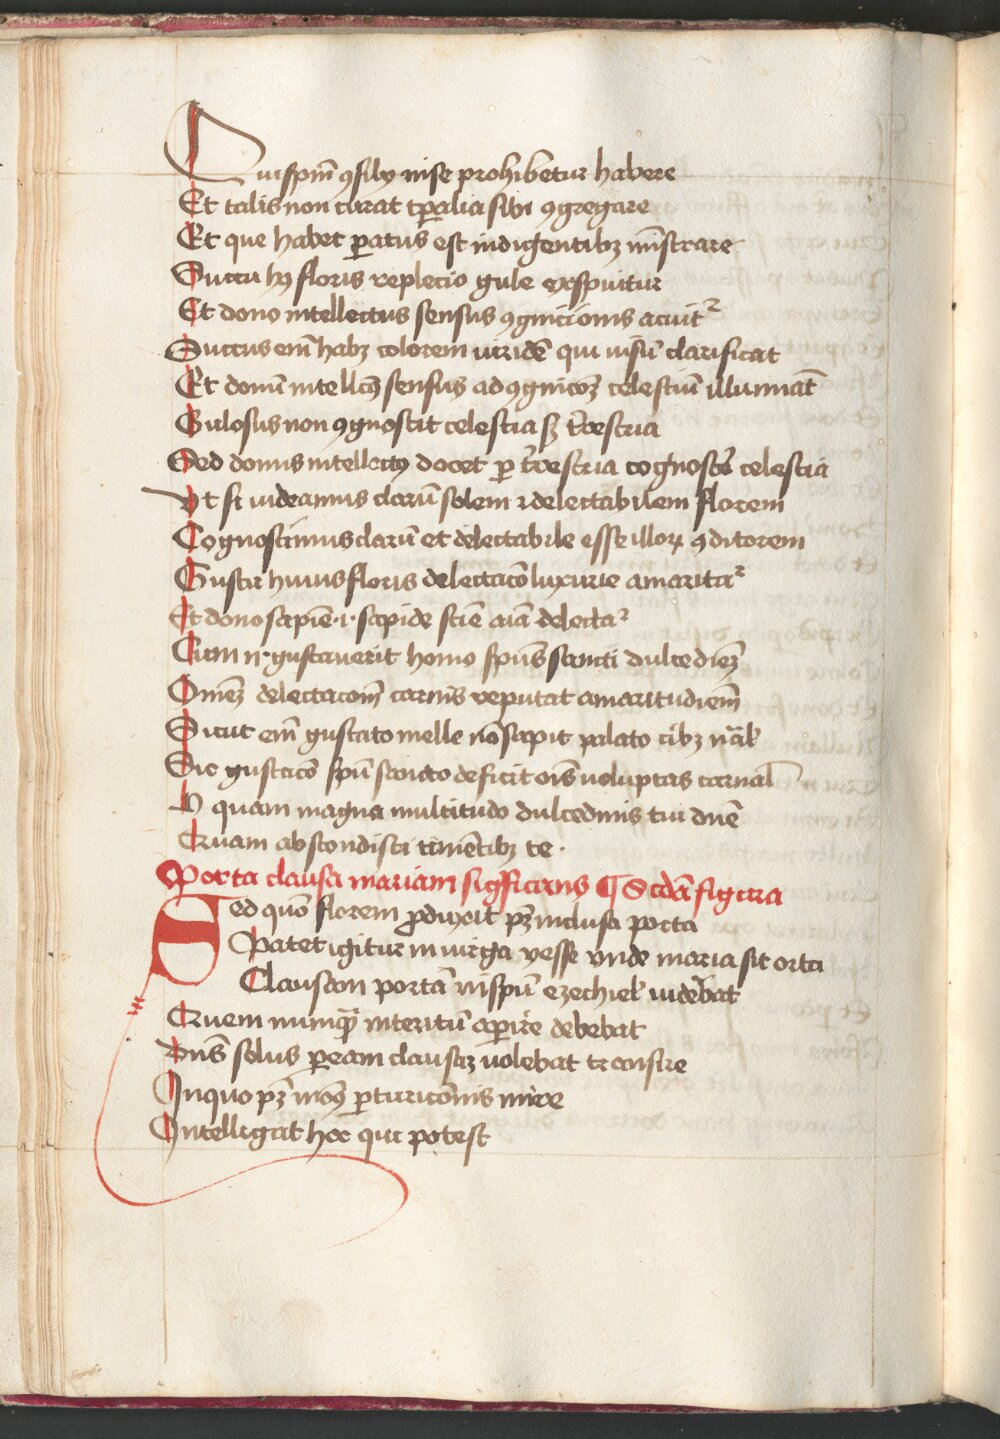 Quispm̄ ꝯsiliū iniste prohibetur habere
Et talis non curat tꝑalia sibi ꝯgregare
Et que habet ꝑatus est indigentibꝫ mīstrare
Succu hꝰ floris replecio gule exspuitur
Et dono intellectus sensus ꝯgnicionis acuitᷣ
Succus em̄ habꝫ colorem viridē qui uisū clarificat
Et donū intellcꝰ sensus ad ꝯgnicoꝫ celestiū illuminat
Gulosus non ꝯgnoscit celestia sꝫ t̄restria
Sed donus intellectꝰ docet ꝑ t̄restria cognosce᷑ celestia
Ut si uideamus clarū solem ⁊ delectabilem florem
Cognoscimus clarū et delectabile esse illoꝝ ꝯditorem
Gustu huius floris delectacō luxurie amaritaᷣ
Et dono sapiē ·i· sapide sciē aīa delectaᷣ
Cum n· gustauerit homo spūs sancti dulcediēꝫ
Omēꝫ delectacom̄ carnis reputat amaritudiem̄
Sicut em̄ gustato melle nō sapit palato cibꝫ
Sic gustato spū sancto deficit oīs uoluptas carnal
O quam magna multitudo dulcedinis tui dn̄e
Quam abscondisti timētibꝫ te ·
Porta clausa mariam sigficans ¶ Scdā figura
Sed quō florem ꝓduxit pꝫ inclusa porta
Patet igitur in uirga yesse unde maria sit orta
Clausam portā in spū ezechiel uidebat
Quem numqᷓ interitū aperire debebat
Dn̄s solus ꝑ eam clausaꝫ uolebat transire
In quo pꝫ modꝰ ꝑturicōnis mire
Intelligat hoc qui potest